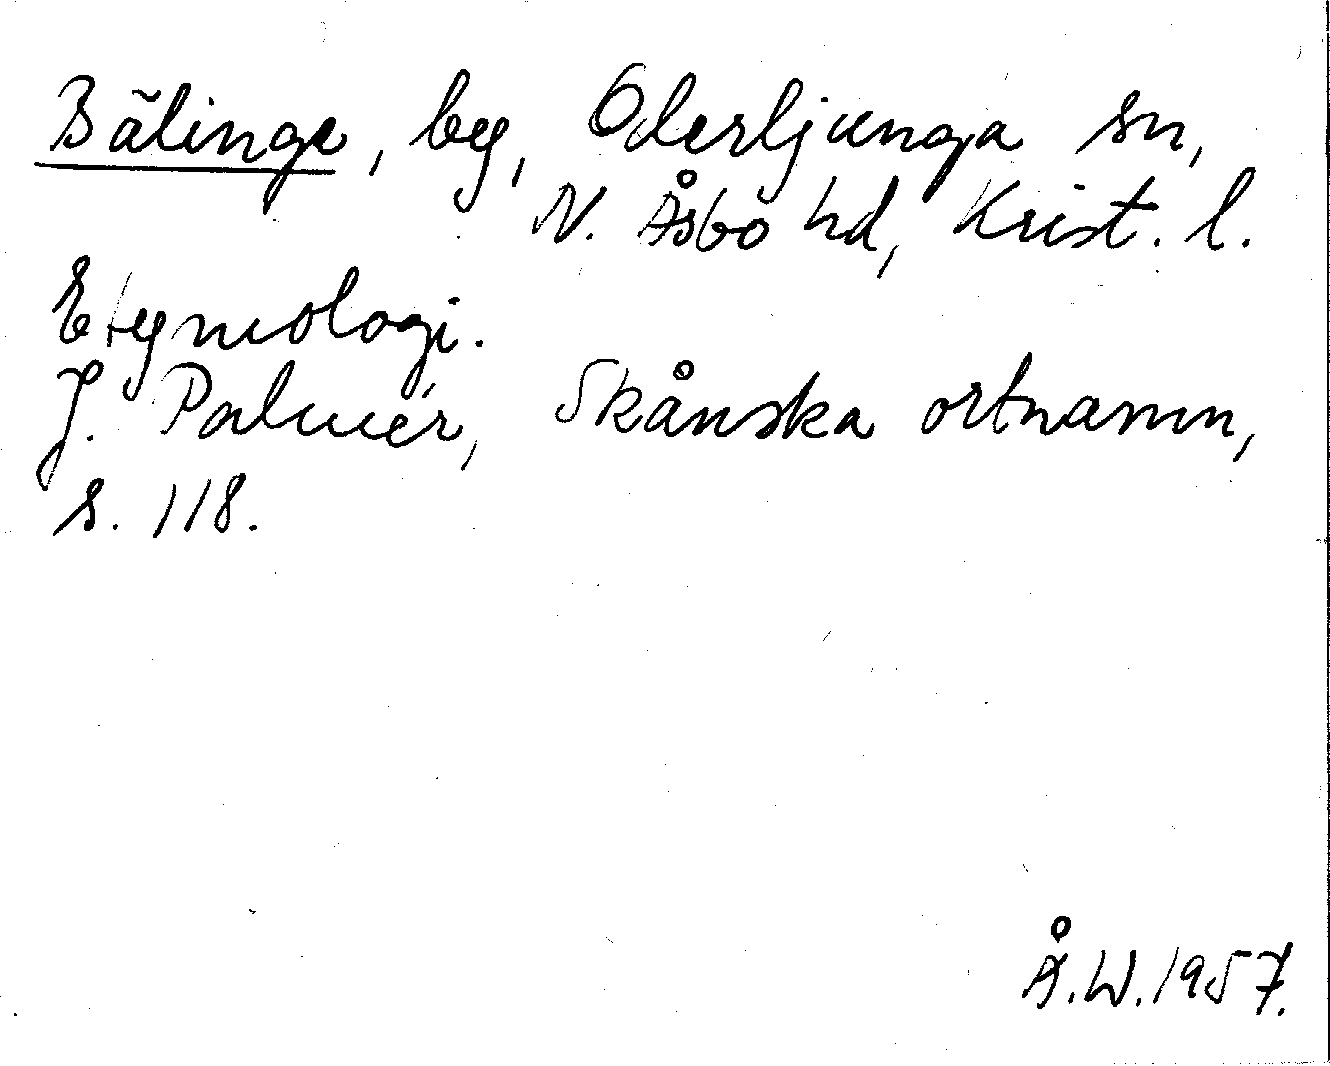 Bälinge, by, Oderljunga sn,
N. Åsbo hd, Krist. l.
Etymologi.
J. Palmér, Skånska ortnamn,
s. 118.
Å.W. 1957.